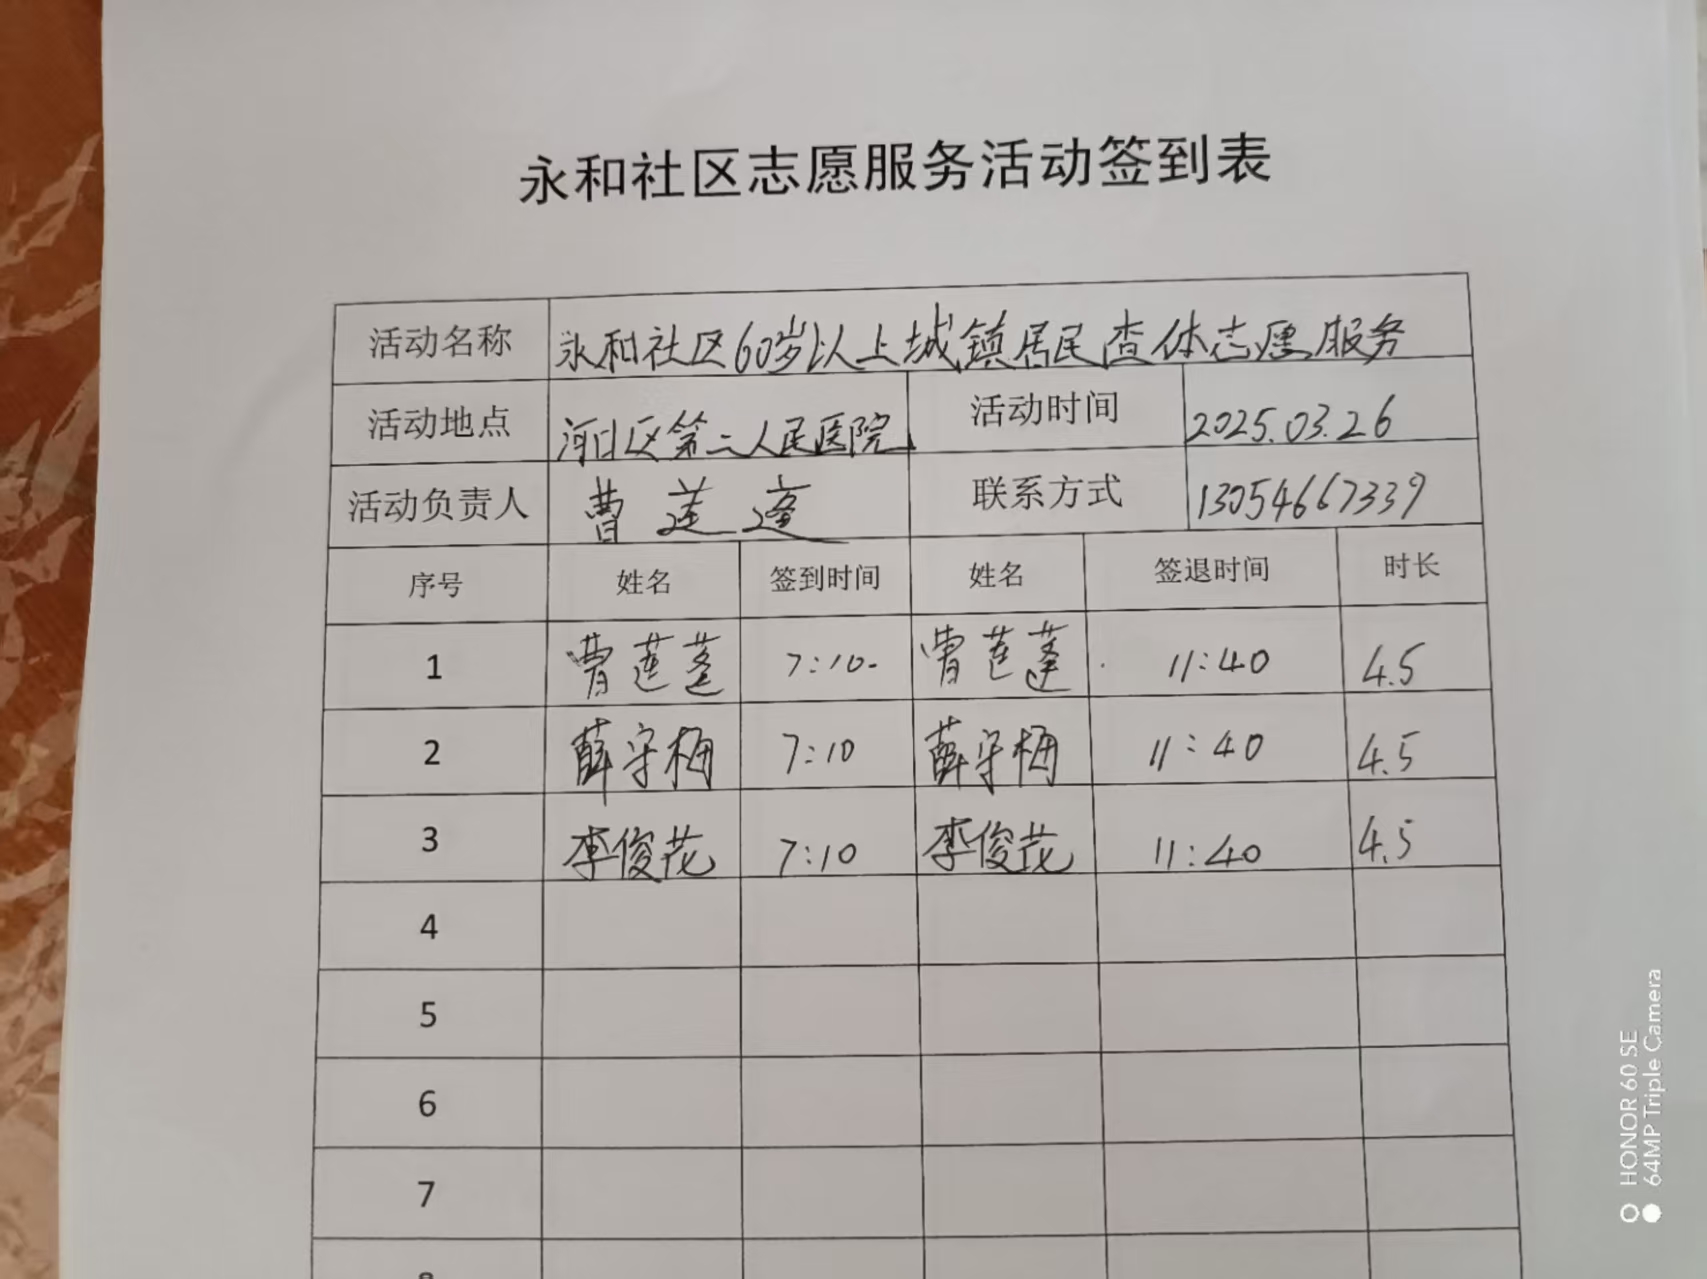 永和社区志愿服务活动签到表
活动名称 永和社区60岁以上城镇居民查体志愿服务
活动地点 河口区第二人民医院 活动时间 2025.03.26
活动负责人 曹莲蓬 联系方式 13054667339
序号 姓名 签到时间 姓名 签退时间 时长
1 曹莲蓬 7:10 曹莲蓬 11:40 4.5
2 薛守梅 7:10 薛守梅 11:40 4.5
3 李俊花 7:10 李俊花 11:40 4.5
4
5
6
7
8
HONOR 60 SE
64MP Triple Camera